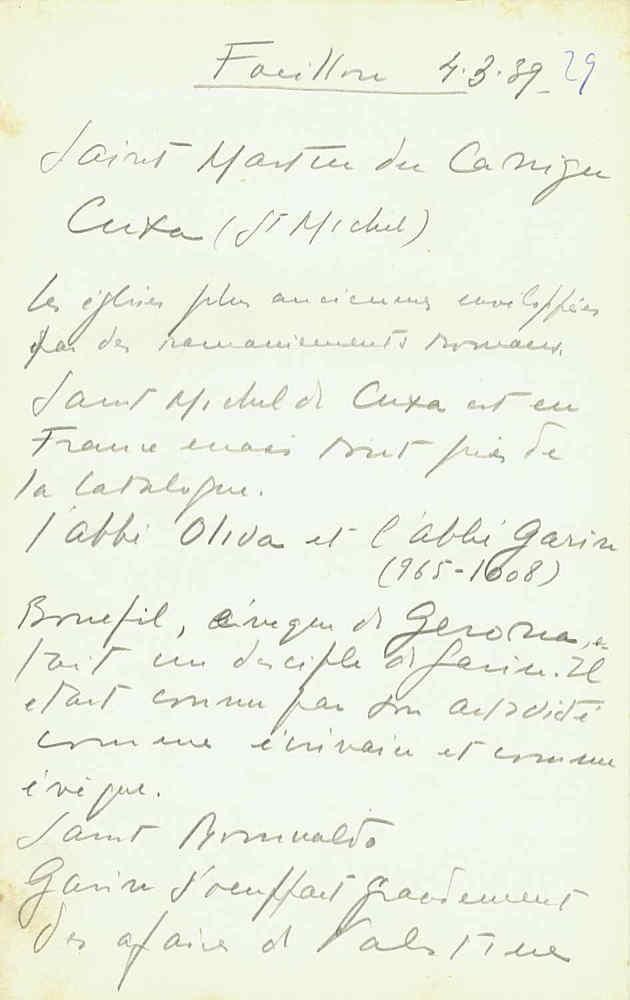 Focillon 4.3.39 29
Saint Martin du Canigu
Cuxa (St Michel)
les églises plus anciennes enveloppées
par des remaniements romans.
Saint Michel de Cuxa est en
France mais tout près de
la Catalogue.
l'abbé Oliva et l'abbé Garin
(965-1008)
Bonefil, évêque de Gerona, é-
tait un disciple de Garin. Il
etait connu par son
comme écrivain et comme
évêque.
Saint Romualdo
Garin s'ocuppait grandement
des afaires de Palestine